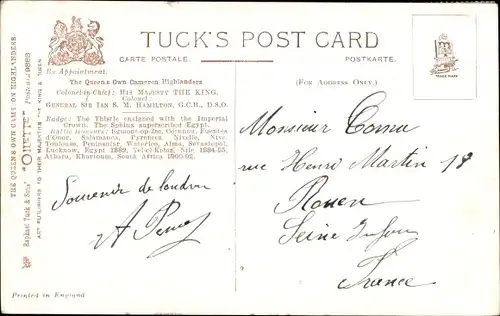 TUCK'S POST CARD
CARTE POSTALE.
POSTKARTE.
By Appointment.
(FOR ADDRESS ONLY.)
TRADE MARK
The Queens Own Cameron Highlanders
Colonel-in-Chief: HIS MAJESTY THE KING.
Colonel:
GENERAL SIR IAN S. M. HAMILTON, G.C.B., D.S.O.
Badge: The Thistle ensigned with the Imperial
Crown. The Sphinx superscribed Egypt.
Battle Honours: Egmont-op-Zee, Corunna, Fuentes
d'Onor, Salamanca, Pyrenees, Nivelle, Nive,
Toulouse, Peninsular, Waterloo, Alma, Sevastopol,
Lucknow, Egypt 1882, Tel-el-Kebir, Nile 1884-85,
Atbara, Khartoum, South Africa 1900-02.
THE QUEENS OWN CAMERON HIGHLANDERS.
Raphael Tuck & Sons' "OILETTE" Postcard 9885
ART PUBLISHERS TO THEIR MAJESTIES THE KING & QUEEN
Souvenir de Londres
A
Monsieur Cornu
rue Henri Martin 18
Rouen
Seine Infre
France
Printed in England